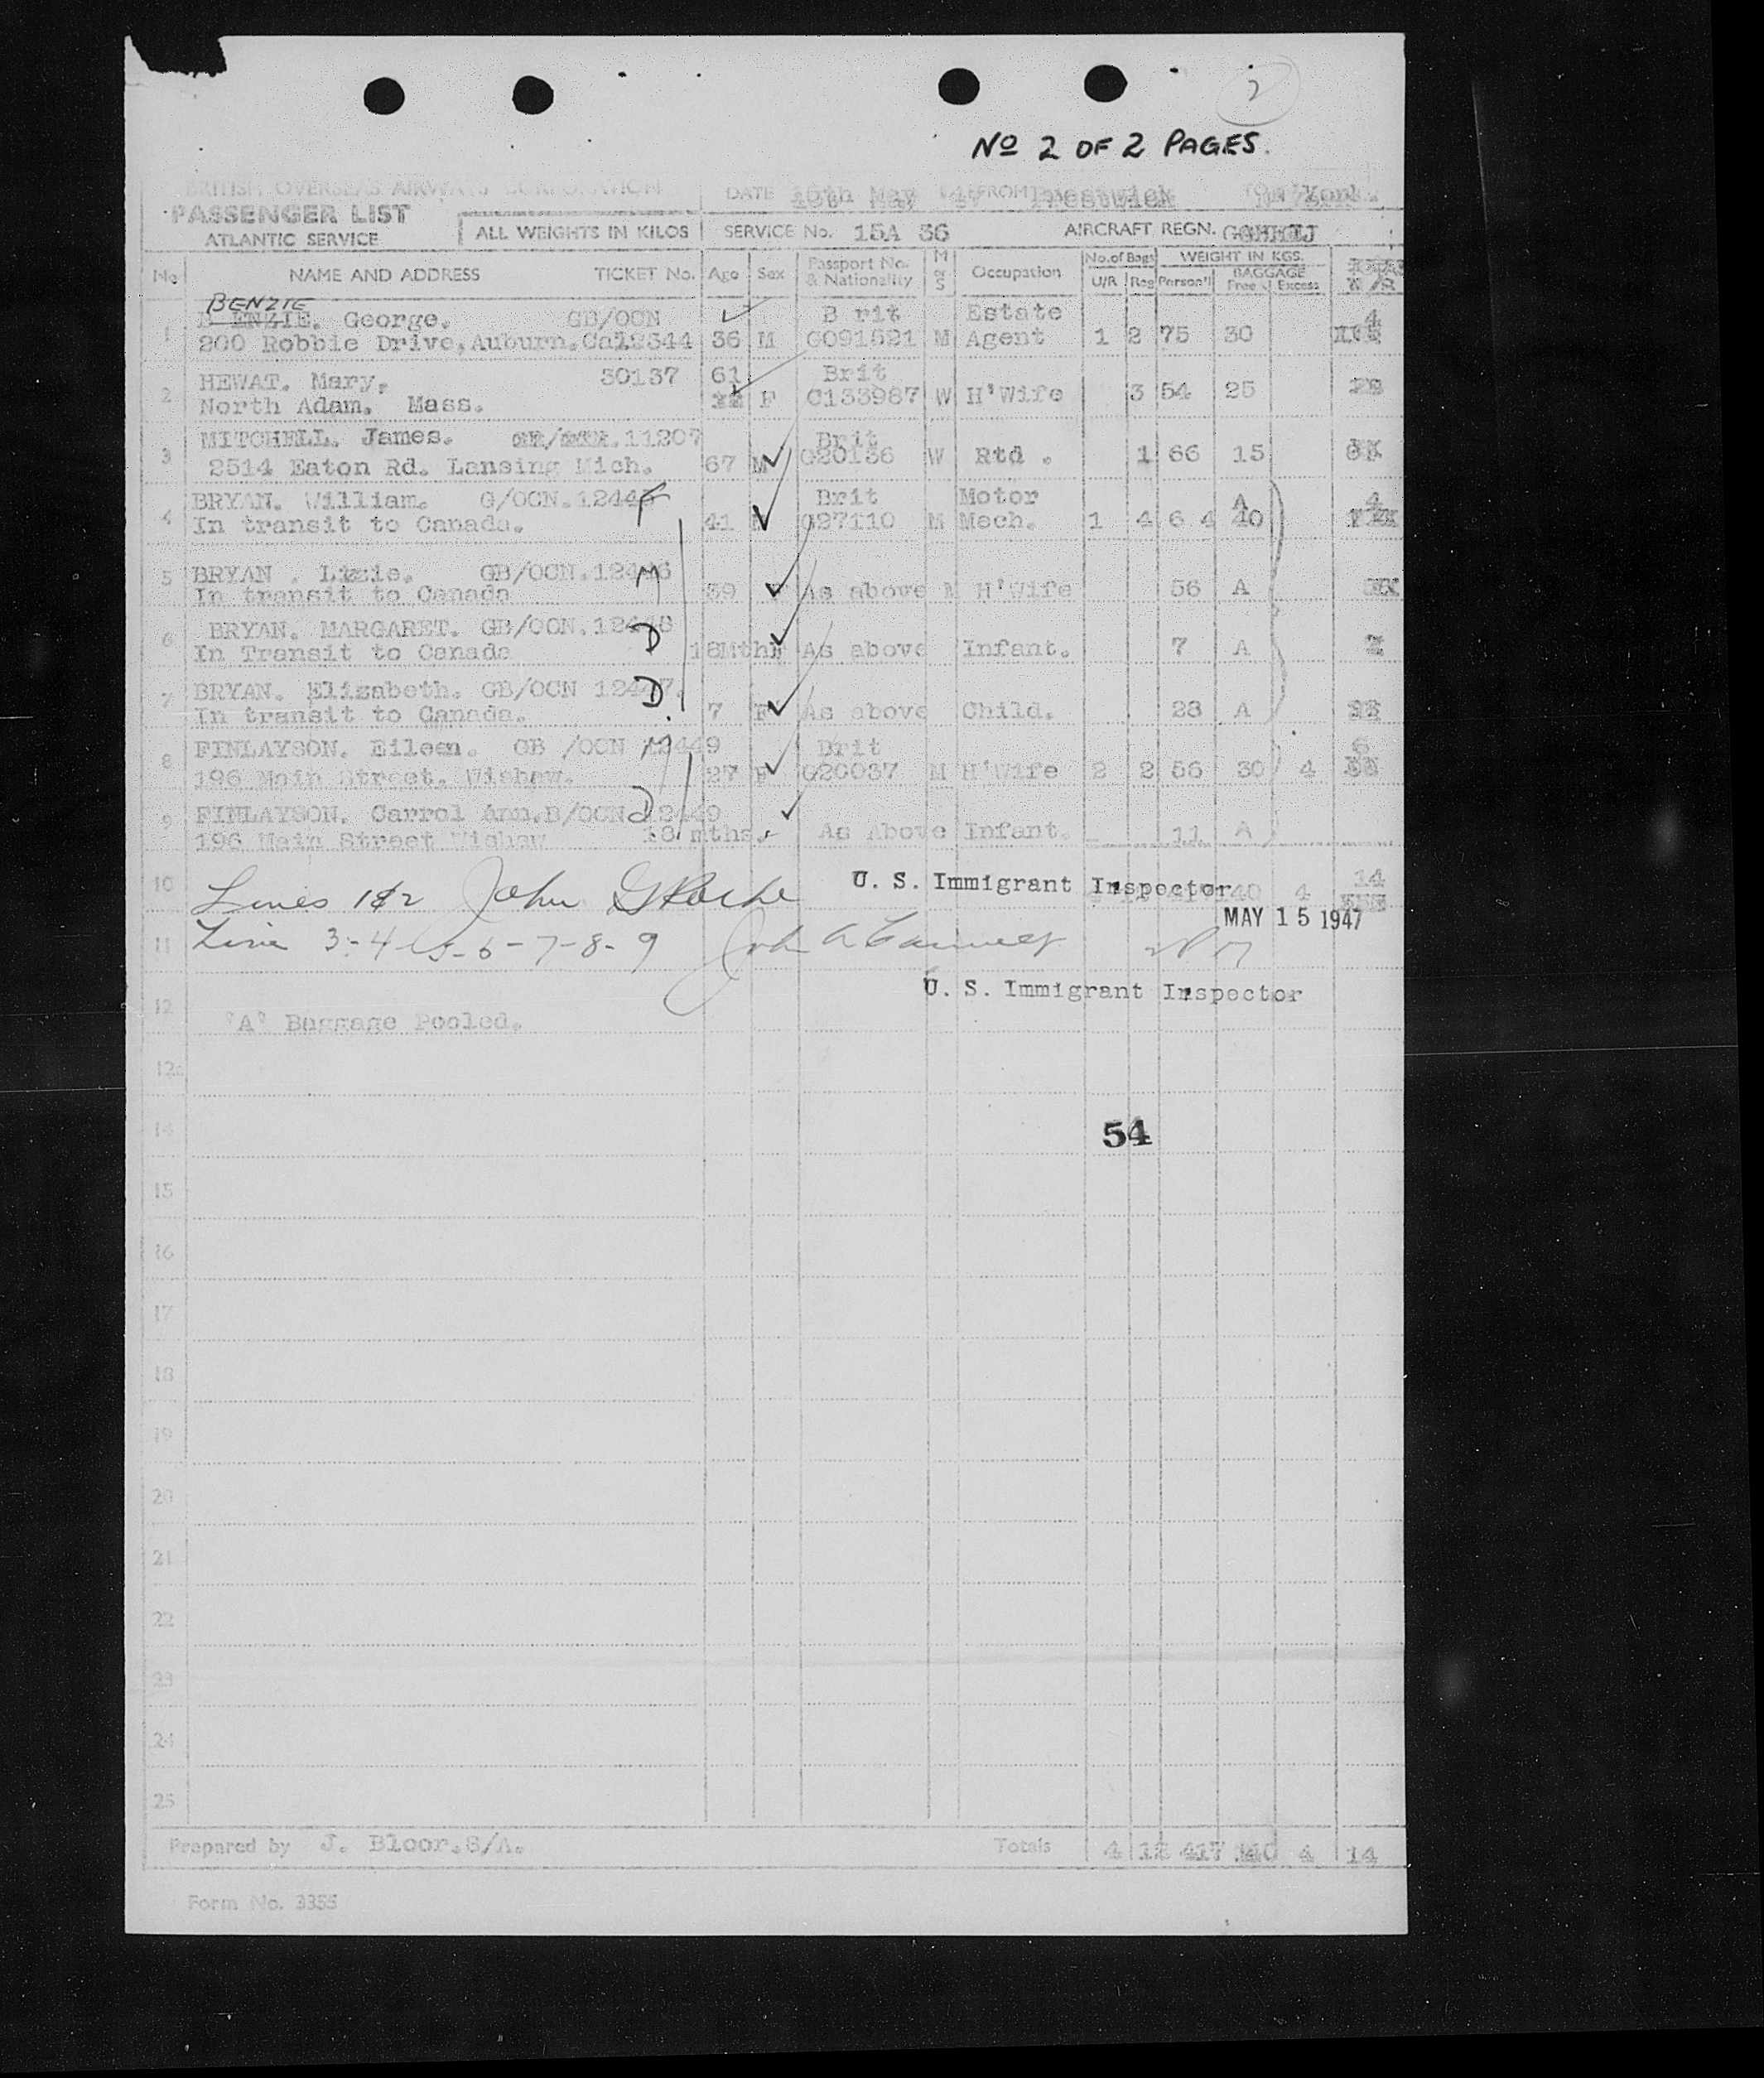 2
No 2 OF 2 PAGES.
BRITISH OVERSEAS AIRWAYS CORPORATION DATE May 47 FROM Prestwick TO N'York.
PASSENGER LIST
ATLANTIC SERVICE ALL WEIGHTS IN KILOS SERVICE No. 15A 36 AIRCRAFT REGN.
No NAME AND ADDRESS TICKET No. Age Sex Passport No. & Nationality M or S Occupation No. of Bags U/R Reg WEIGHT IN KGS. Person'l BAGGAGE Free Excess
BENZIE
1 B ENZIE. George. GB/OCN B rit Estate 4
200 Robbie Drive, Auburn. 36 M C091521 M Agent 1 2 75 30
2 HEWAT. Mary. 30137 61 Brit
North Adam. Mass. F C133987 W H'Wife 3 54 25
3 MITCHELL. James. 11207 Brit
2514 Eaton Rd. Lansing Mich. 67 M C20136 W Rtd . 1 66 15
4 BRYAN. William. G/OCN. F Brit Motor A 4
In transit to Canada. 41 M M Mech. 1 4 6 4 40
5 BRYAN . Lizzie. GB/OCN. M
In transit to Canada 39 F As above M H'Wife 56 A
6 BRYAN. MARGARET. GB/OCN. D
In Transit to Canada 18Mths As above Infant. 7 A
7 BRYAN. Elizabeth. GB/OCN D
In transit to Canada. 7 F As above Child. 28 A
8 FINLAYSON. Eileen. GB /OCN 12449 Brit 6
196 Main Street. Wishaw. 27 F C20037 M H'Wife 2 2 56 30 4
9 FINLAYSON. Carrol Ann. B/OCN D 12449
196 Main Street Wishaw 18 mths. As Above Infant. 11 A
10 Lines 1&2 John U. S. Immigrant Inspector 4 14
MAY 15 1947
11 Line 3-4-5-6-7-8-9 John A
U. S. Immigrant Inspector
12
'A' Baggage Pooled.
14
54
15
16
17
18
19
20
21
22
23
24
25
Prepared by J. Bloor. S/A. Totals 4 12 417 140 4 14
Form No. 3355